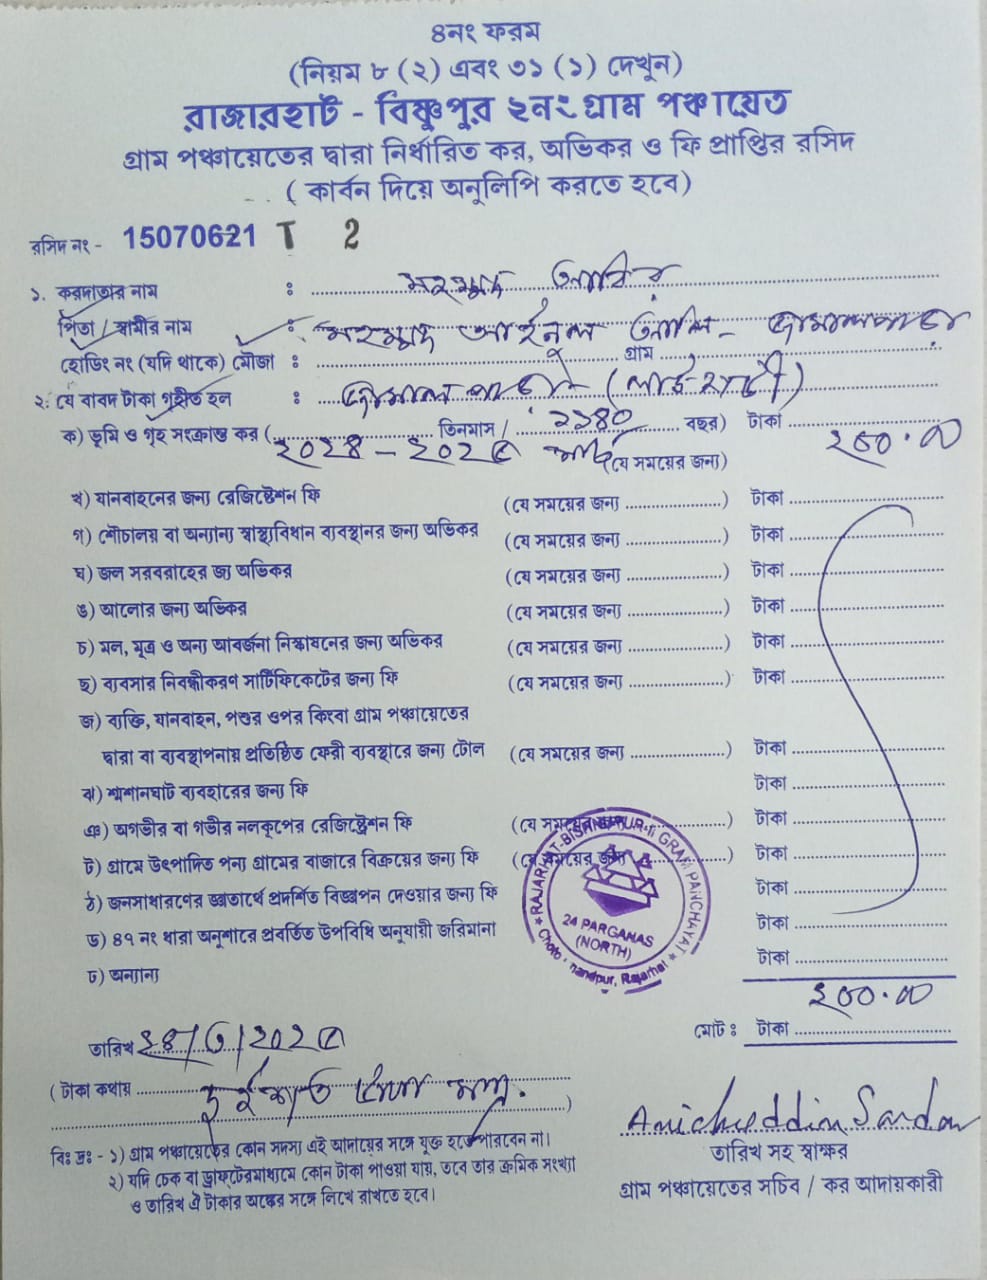 ৪নং ফরম
(নিয়ম ৮ (২) এবং ৩১ (১) দেখুন)
রাজারহাট - বিষ্ণুপুর ২নং গ্রাম পঞ্চায়েত
গ্রাম পঞ্চায়েতের দ্বারা নির্ধারিত কর, অভিকর ও ফি প্রাপ্তির রসিদ
( কার্বন দিয়ে অনুলিপি করতে হবে)
রসিদ নং - 15070621 T 2
১. করদাতার নাম : মহম্মদ
পিতা / স্বামীর নাম : মহম্মদ আইনুল আলি -
হোল্ডিং নং (যদি থাকে) মৌজা : গ্রাম
২. যে বাবদ টাকা গৃহীত হল :
ক) ভূমি ও গৃহ সংক্রান্ত কর ( তিনমাস / বছর) টাকা ২০০.০০
২০২৪ - ২০২৫ (যে সময়ের জন্য)
খ) যানবাহনের জন্য রেজিস্ট্রেশন ফি (যে সময়ের জন্য ) টাকা
গ) শৌচালয় বা অন্যান্য স্বাস্থ্যবিধান ব্যবস্থানর জন্য অভিকর (যে সময়ের জন্য ) টাকা
ঘ) জল সরবরাহের জ্য অভিকর (যে সময়ের জন্য ) টাকা
ঙ) আলোর জন্য অভিকর (যে সময়ের জন্য ) টাকা
চ) মল, মূত্র ও অন্য আবর্জনা নিষ্কাষনের জন্য অভিকর (যে সময়ের জন্য ) টাকা
ছ) ব্যবসার নিবন্ধীকরণ সার্টিফিকেটের জন্য ফি (যে সময়ের জন্য ) টাকা
জ) ব্যক্তি, যানবাহন, পশুর ওপর কিংবা গ্রাম পঞ্চায়েতের
দ্বারা বা ব্যবস্থাপনায় প্রতিষ্ঠিত ফেরী ব্যবহারে জন্য টোল (যে সময়ের জন্য ) টাকা
ঝ) শ্মশানঘাট ব্যবহারের জন্য ফি টাকা
ঞ) অগভীর বা গভীর নলকূপের রেজিস্ট্রেশন ফি (যে সময়ের জন্য ) টাকা
ট) গ্রামে উৎপাদিত পন্য গ্রামের বাজারে বিক্রয়ের জন্য ফি (যে সময়ের জন্য ) টাকা
ঠ) জনসাধারণের জ্ঞতার্থে প্রদর্শিত বিজ্ঞাপন দেওয়ার জন্য ফি টাকা
ড) ৪৭ নং ধারা অনুশারে প্রবর্তিত উপবিধি অনুযায়ী জরিমানা টাকা
ঢ) অন্যান্য টাকা
RAJARHAT-BISHNUPUR-II GRAM PANCHAYAT
24 PARGANAS
(NORTH)
Rajarhat
মোট : টাকা ২০০.০০
তারিখ ২৪/৩/২০২৫
( টাকা কথায় দুইশত টাকা মাত্র. )
Anichuddin Sardar
তারিখ সহ স্বাক্ষর
গ্রাম পঞ্চায়েতের সচিব / কর আদায়কারী
বিঃ দ্রঃ - ১) গ্রাম পঞ্চায়েতের কোন সদস্য এই আদায়ের সঙ্গে যুক্ত হতে পারবেন না।
২) যদি চেক বা ড্রাফ্টেরমাধ্যমে কোন টাকা পাওয়া যায়, তবে তার ক্রমিক সংখ্যা
ও তারিখ ঐ টাকার অঙ্কের সঙ্গে লিখে রাখতে হবে।